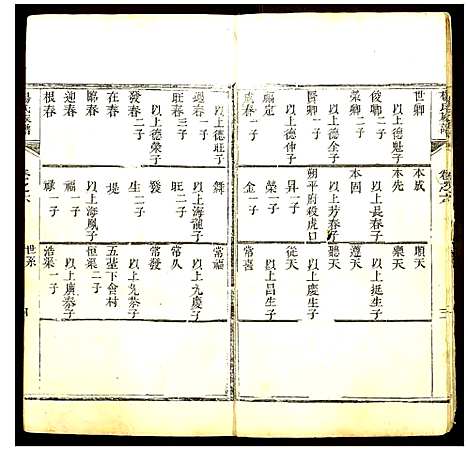 楊氏族譜
卷之六
三
世卿
俊卿二子
以上德魁子
榮卿一子
爵卿一子
以上德仲子
顯定
成春一子
本成
本先
以上長春子
本固
以上芳春子
朔平府殺虎口
昇一子
榮一子
金一子
順天
樂天
以上挺生子
遵天
聽天
以上慶生子
從天
以上昌生子
常喜
以上德旺子
遇春一子
旺春三子
以上德榮子
發春二子
在春
陽春二子
迎春
根春一子
舞
以上海龍子
旺二子
發
以上生子
堤
以上海鳳子
福一子
祿一子
常福
以上九慶子
常久
常發
以上九恭子
五臺下會村
恒渠二子
以上廣泰子
浩渠一子
楊氏族譜
卷之六
世系
四